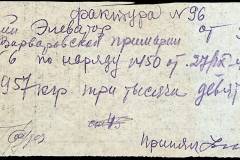 фактура N 96
Элеватор от
Варваровской примарии
6 по наряду N150 от. 27/
957 кгр три тысяча девят
Принял